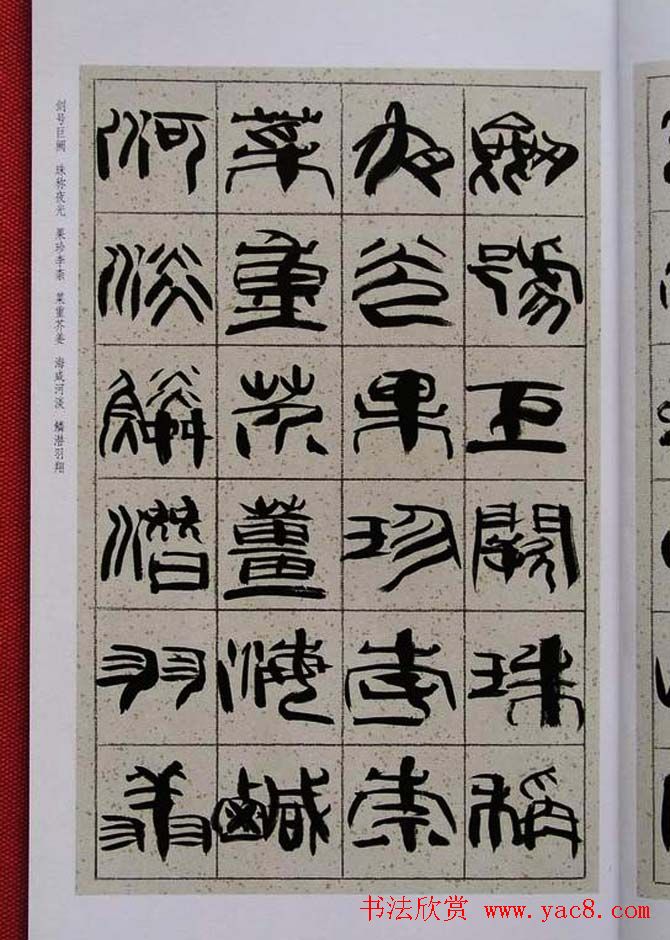 劍號巨闕珠稱
夜光果珍李柰
菜重芥薑海鹹
河淡鱗潛羽翔
剑号巨阙 珠称夜光 果珍李柰 菜重芥姜 海咸河淡 鳞潜羽翔
书法欣赏 www.yac8.com